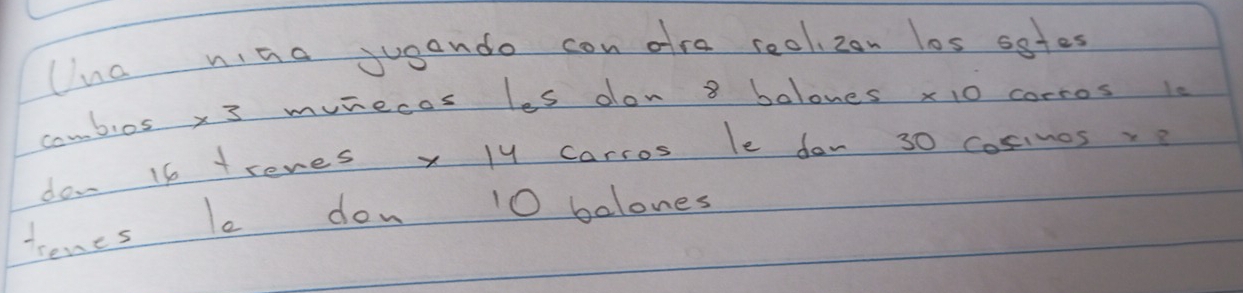 Una niña jugando con otra realizan los sgtes
cambios x 3 muñecas les dan 8 balones x 10 carros le
dan 16 trenes x 14 carros le dan 30 x
trenes le dan 10 balones